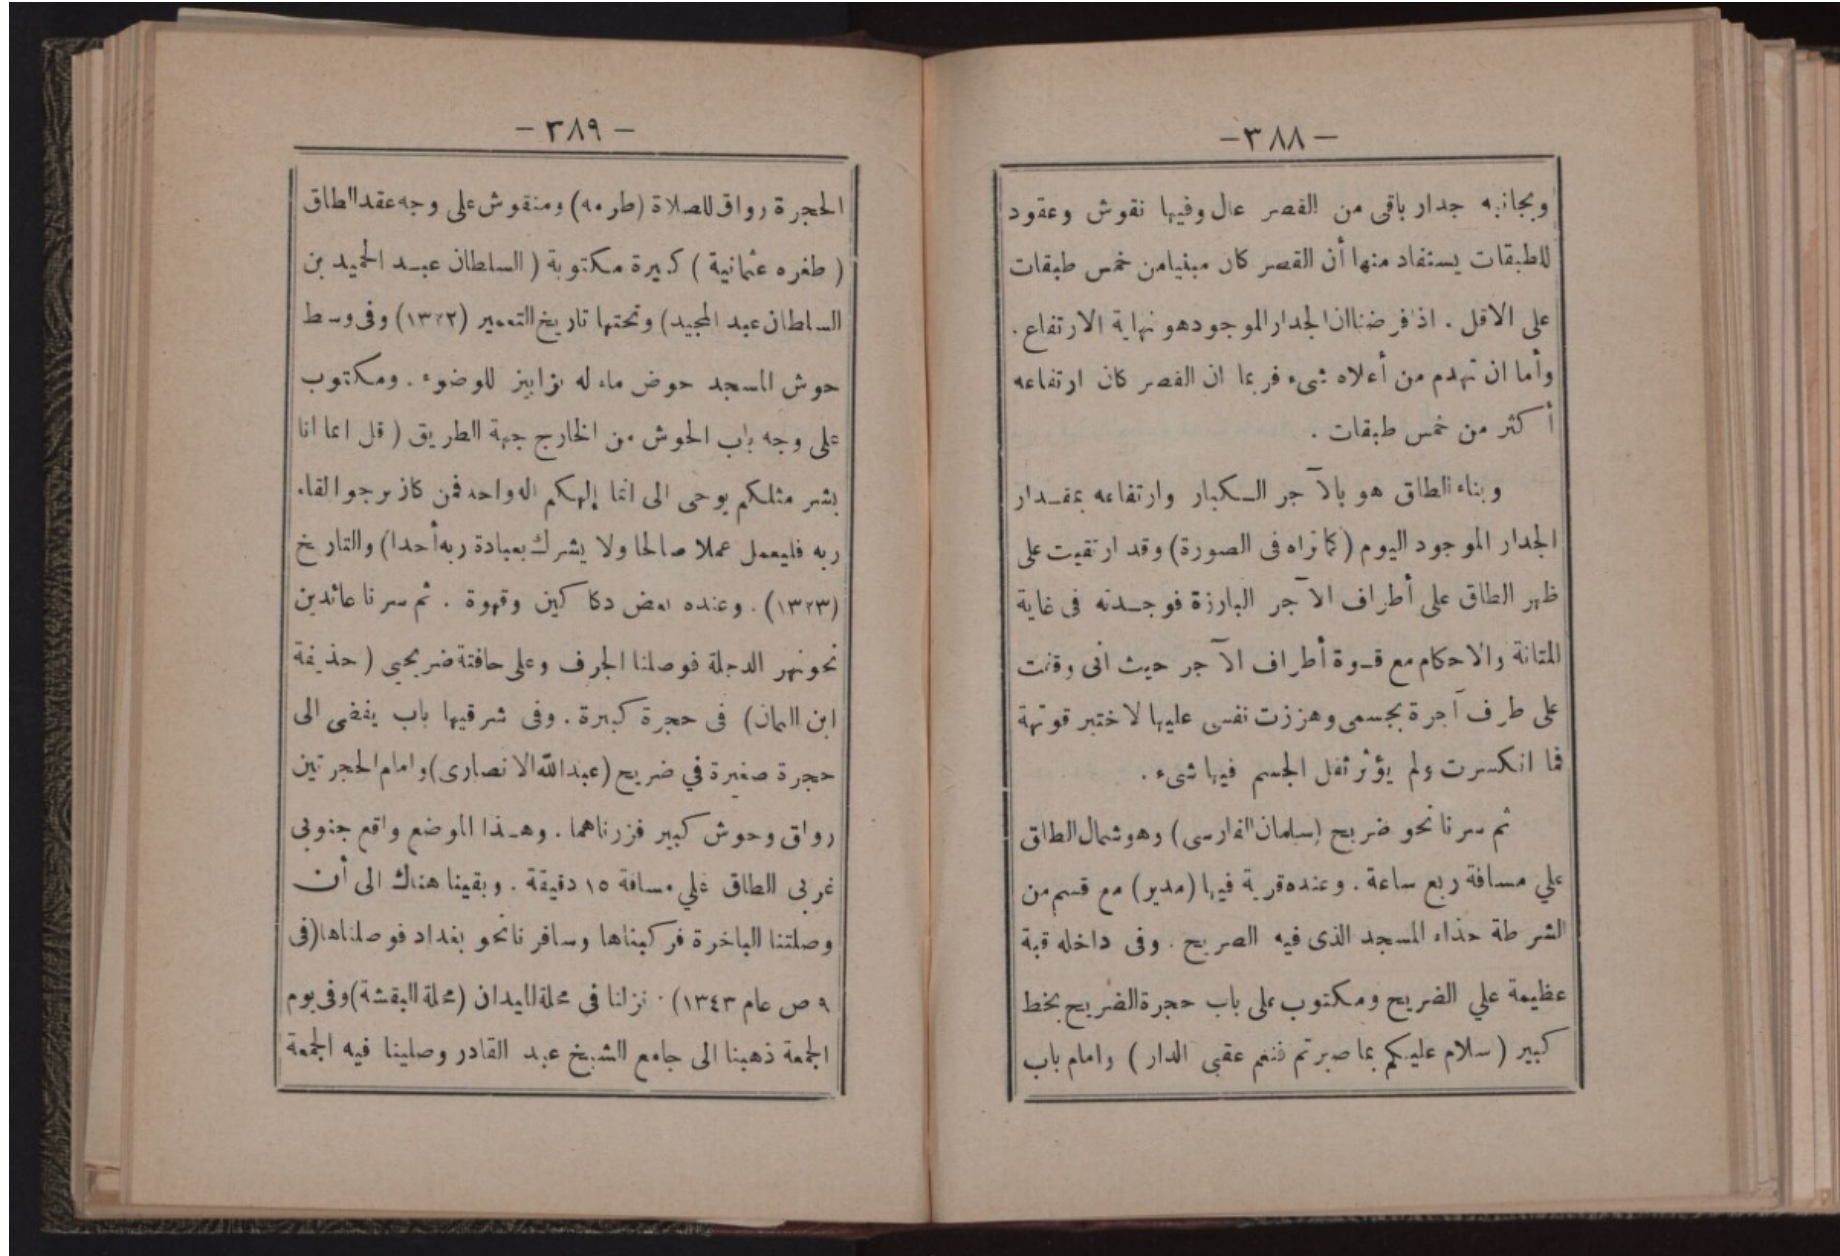 -٣٨٨-
وبجانبه جدار باقى من القصر عال وفيها نقوش وعقود
للطبقات يستفاد منها أن القصر كان مبنيامن خمس طبقات
على الاقل . اذا فرضناان الجدار الموجودهو نهاية الارتفاع .
وأما ان تهدم من أعلاه شىء فربما ان القصر كان ارتفاعه
أكثر من خمس طبقات .
وبناء الطاق هو بالآجر الكبار وارتفاعه بمقدار
الجدار الموجود اليوم (كما تراه فى الصورة) وقد ارتقيت على
ظهر الطاق على أطراف الآجر البارزة فوجدته فى غاية
المتانة والاحكام مع قوة أطراف الآجر حيث انى وقفت
على طرف آجرة بجسمى وهززت نفسى عليها لاختبر قوتهة
فما انكسرت ولم يؤثر ثقل الجسم فيها شىء .
ثم سرنا نحو ضريح (سلمان الفارسى) وهو شمال الطاق
علي مسافة ربع ساعة . وعنده قرية فيها (مدير) مع قسم من
الشرطة حذاء المسجد الذى فيه الضريح . وفى داخله قبة
عظيمة علي الضريح ومكتوب على باب حجرة الضريح بخط
كبير (سلام عليكم بما صبرتم فنعم عقبى الدار) وامام باب
-٣٨٩-
الحجرة رواق للصلاة (طرمه) ومنقوش على وجه عقد الطاق
(طغره عثمانية) كبيرة مكتوبة (السلطان عبد الحميد بن
السلطان عبد المجيد) وتحتها تاريخ التعمير (١٣٢٢) وفى وسط
حوش المسجد حوض ماء له بزابيز للوضوء . ومكتوب
على وجه باب الحوش من الخارج جهة الطريق (قل انما انا
بشر مثلكم يوحى الى انما إلهكم اله واحد فمن كان يرجو القاء
ربه فليعمل عملا صالحا ولا يشرك بعبادة ربه أحدا) والتاريخ
(١٣٢٣) . وعنده بعض دكاكين وقهوة . ثم سرنا عائدين
نحو نهر الدجلة فوصلنا الجرف وعلى حافتة ضريحي (حذيفة
ابن اليمان) فى حجرة كبيرة . وفى شرقيها باب يفضى الى
حجرة صغيرة في ضريح (عبدالله الانصارى) وامام الحجرتين
رواق وحوش كبير فزرناهما . وهذا الموضع واقع جنوبى
غربى الطاق علي مسافة ١٥ دقيقة . وبقينا هناك الى أن
وصلتنا الباخرة فركبناها وسافرنا نحو بغداد فوصلناها (فى
٩ ص عام ١٣٤٣) . نزلنا في محلة الميدان (محلة البقشة) وفى يوم
الجمعة ذهبنا الى جامع الشيخ عبد القادر وصلينا فيه الجمعة